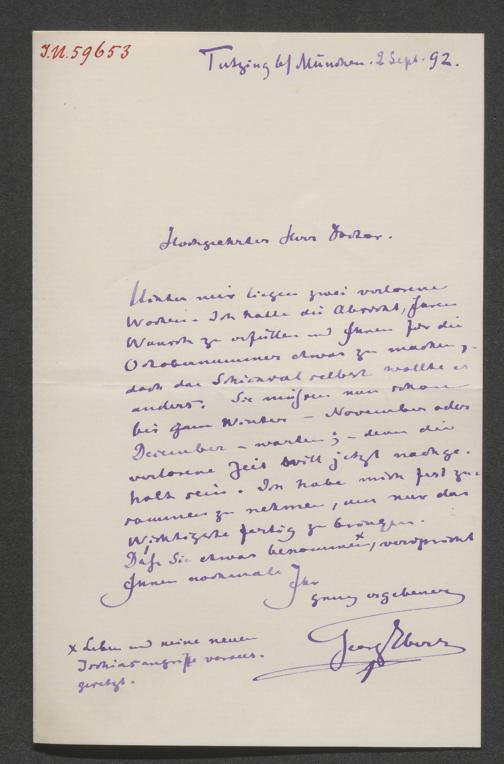 I.N. 59653
Tutzing b/ München. 2 Sept. 92.
Hochgeehrter Herr Doctor.
Hinter mir liegen zwei verlorene
Wochen. Ich hatte die Absicht, Ihren
Wunsch zu erfüllen und Ihnen für die
Octobernummer etwas zu machen,
doch das Schicksal selbst wollte es
anders. Sie müssen nun schon
bis zum Winter – November oder
December – warten; – denn die
verlorene Zeit will jetzt nachge-
holt sein. Ich habe mich fest zu-
sammen zu nehmen, um nur das
Wichtigste fertig zu bringen.
Daß Sie etwas bekommen x, verspricht
Ihnen nochmals Ihr
ganz ergebener
Georg Ebers
x Leben und keine neuen
Ischiasangriffe voraus-
gesetzt.